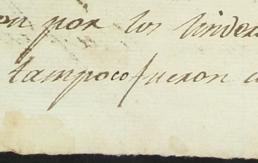 por los linder
tampoco fueron